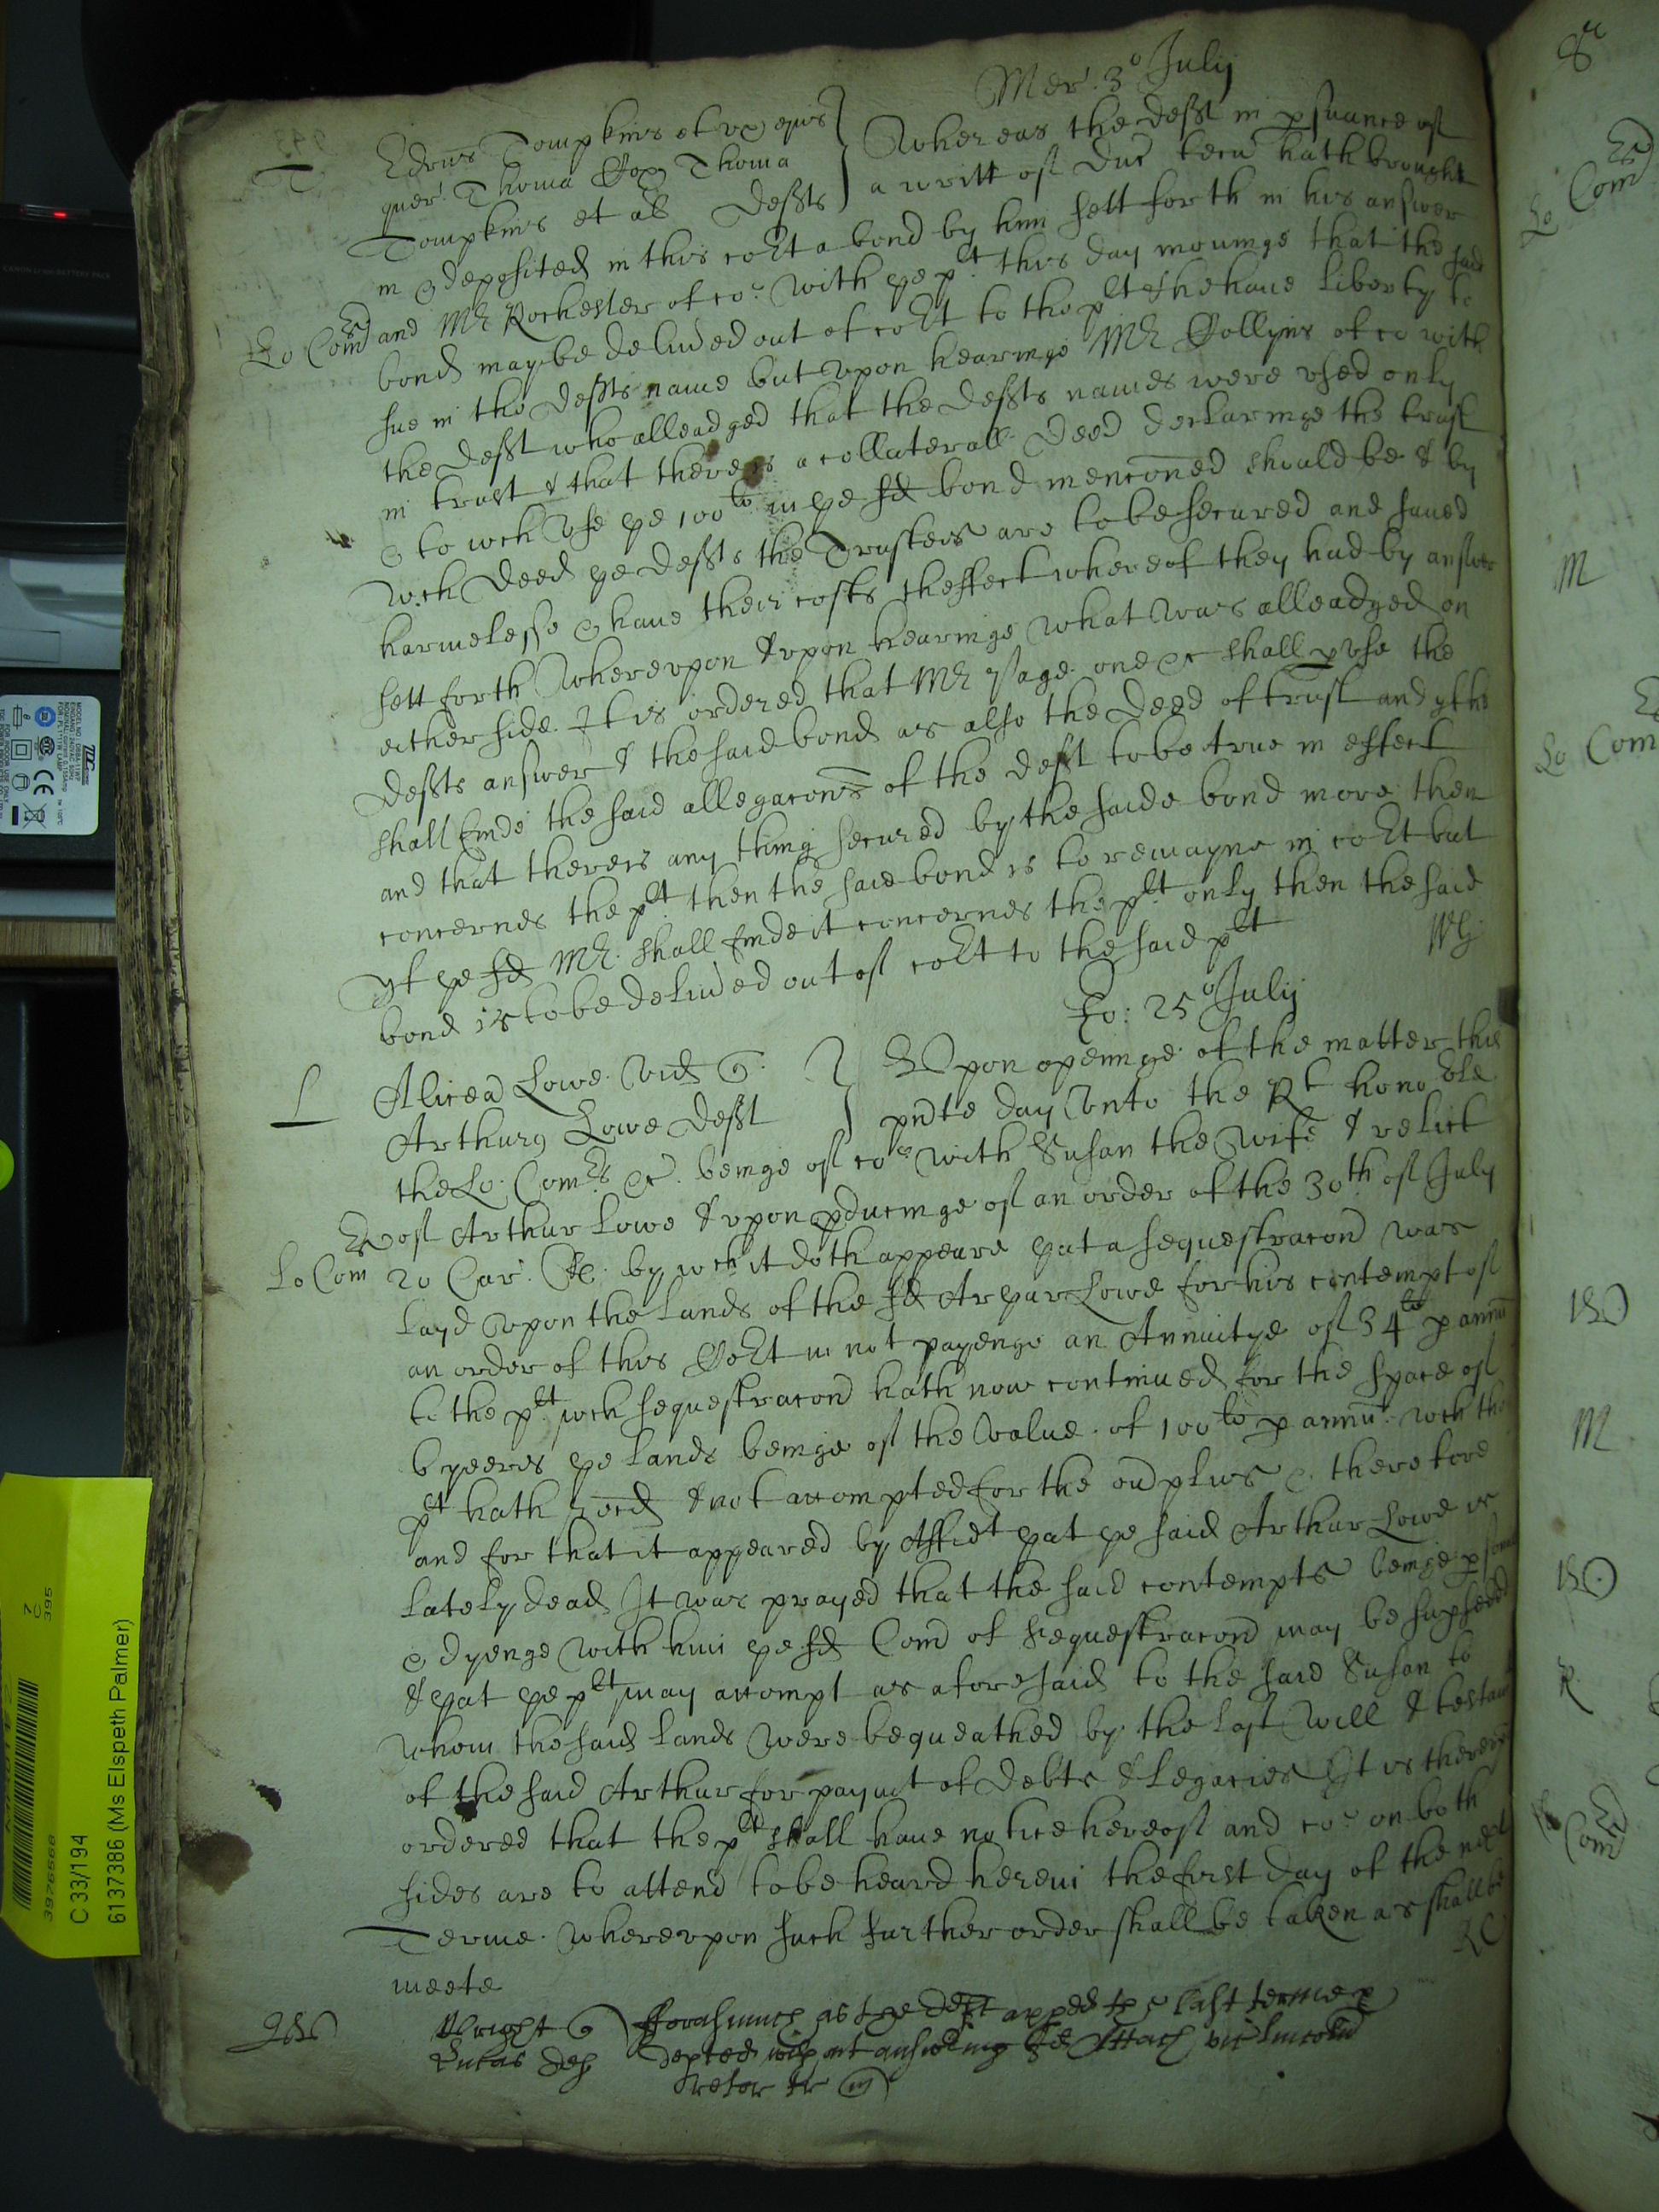 Mer: 3º July
T
Edrus Tompkins et ux eius
quer' Thoma Cox Thoma
Tompkins et als Defts
Whereas the deft in psuance of
a writt of duc tecu hath brought
in & deposited in this coHt a bond by him sett forth in his answer
Lo Com and Mr Rochester of co: with ye plt this day mouinge that the said
bond may be deliuered out of coHt to the plt & he haue liberty to
sue in the Defts name but vpon hearinge Mr Collyns of co with
the Deft who alleadged that the Defts names were vsed only
in trust & that there is a collaterall Deed declaringe the trust
& to wch Vse ye 100li in ye sd bond mencōned should be & by
wch Deed ye Defts the Trustees are to be secured and saued
harmelesse & haue their costs theffect whereof they had by answer
sett forth Wherevpon & vpon hearinge what was alleadged on
either side It is ordered that Mr Page one &c shall pvse the
Defts answer & the said bond as also the Deed of trust and yf he
shall finde the said allegacons of the Deft to be true in effect
and that there is any thing secured by the saide bond more then
concernes the plt then the said bond is to remayne in coHt but
yf ye sd Mr. shall finde it concernes the plt only then the said
bond is to be deliued out of coHt to the said plt
Jo: 25º July
L
Alicea Lowe Vid
Arthurus Lowe Deft
Vpon openinge of the matter this
pnte day Vnto the Rt honoble
the Lo: Comrs &c. beinge of co: with Susan the Wife & relict
of Arthur Lowe & vpon pducinge of an order of the 30th of July
Lo Com 20 Car' &c. by wch it doth appeare yat a sequestracon was
layd Vpon the lands of the sd Arthur Lowe for his contempt of
an order of this CoHt in not payenge an Annuitye of 34li p annu
to the plt wch sequestracon hath now continued for the space of
6 yeeres ye lands beinge of the Value of 100li p annu wch the
plt hath recd & not accompted for the ouplus & therefore
and for that it appeared by Affidt yat ye said Arthur Lowe is
lately dead It was prayed that the said contempts beinge psonall
& dyenge with him ye sd Com of sequestracon may be supseded
& yat ye plt may accompt as aforesaid to the said Susan to
whom the said lands Were bequeathed by the last Will & testamt
of the said Arthur for paymt of debts & legacies It is therevpon
ordered that the plt shall haue notice hereof and co: on both
sides are to attend to be heard herein the first day of the next
Terme. Wherevpon such further order shall be taken as shall be
meete
RC
Wright
Lucas def
fforasmuch as the deft apped last terme &
depted without answering sd Attach vic Lincoln
retor
C 33/194
6137386 (Ms Elspeth Palmer)
7
C
395
3976568
CANON LI-ION BATTERY PACK
8
Lo Com
M
Lo Com
M
R
Com